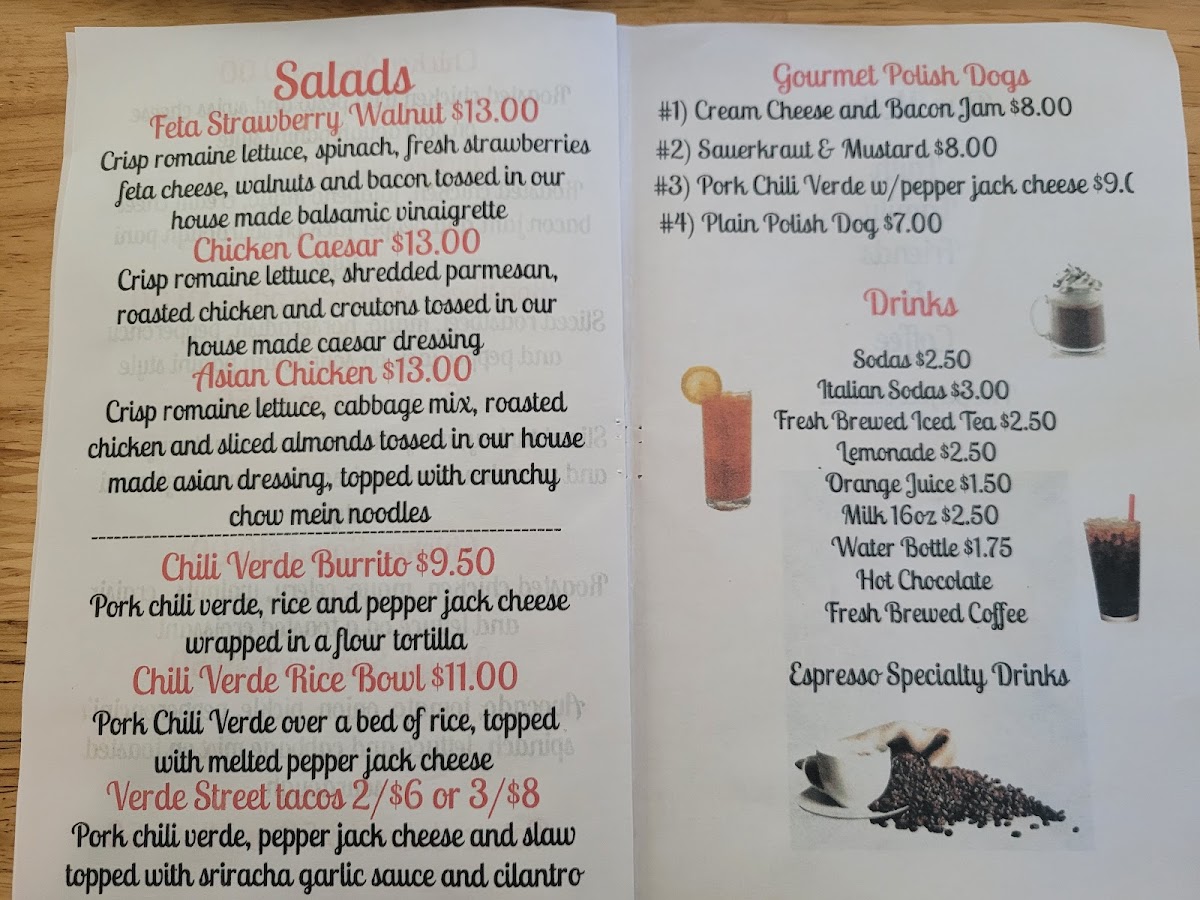 Salads
Feta Strawberry Walnut $13.00
Crisp romaine lettuce, spinach, fresh strawberries
feta cheese, walnuts and bacon tossed in our
house made balsamic vinaigrette
Chicken Caesar $13.00
Crisp romaine lettuce, shredded parmesan,
roasted chicken and croutons tossed in our
house made caesar dressing
Asian Chicken $13.00
Crisp romaine lettuce, cabbage mix, roasted
chicken and sliced almonds tossed in our house
made asian dressing, topped with crunchy
chow mein noodles
Chili Verde Burrito $9.50
Pork chili verde, rice and pepper jack cheese
wrapped in a flour tortilla
Chili Verde Rice Bowl $11.00
Pork Chili Verde over a bed of rice, topped
with melted pepper jack cheese
Verde Street tacos 2/$6 or 3/$8
Pork chili verde, pepper jack cheese and slaw
topped with sriracha garlic sauce and cilantro
Gourmet Polish Dogs
#1) Cream Cheese and Bacon Jam $8.00
#2) Sauerkraut & Mustard $8.00
#3) Pork Chili Verde w/pepper jack cheese
#4) Plain Polish Dog $7.00
Drinks
Sodas $2.50
Italian Sodas $3.00
Fresh Brewed Iced Tea $2.50
Lemonade $2.50
Orange Juice $1.50
Milk 16oz $2.50
Water Bottle $1.75
Hot Chocolate
Fresh Brewed Coffee
Espresso Specialty Drinks